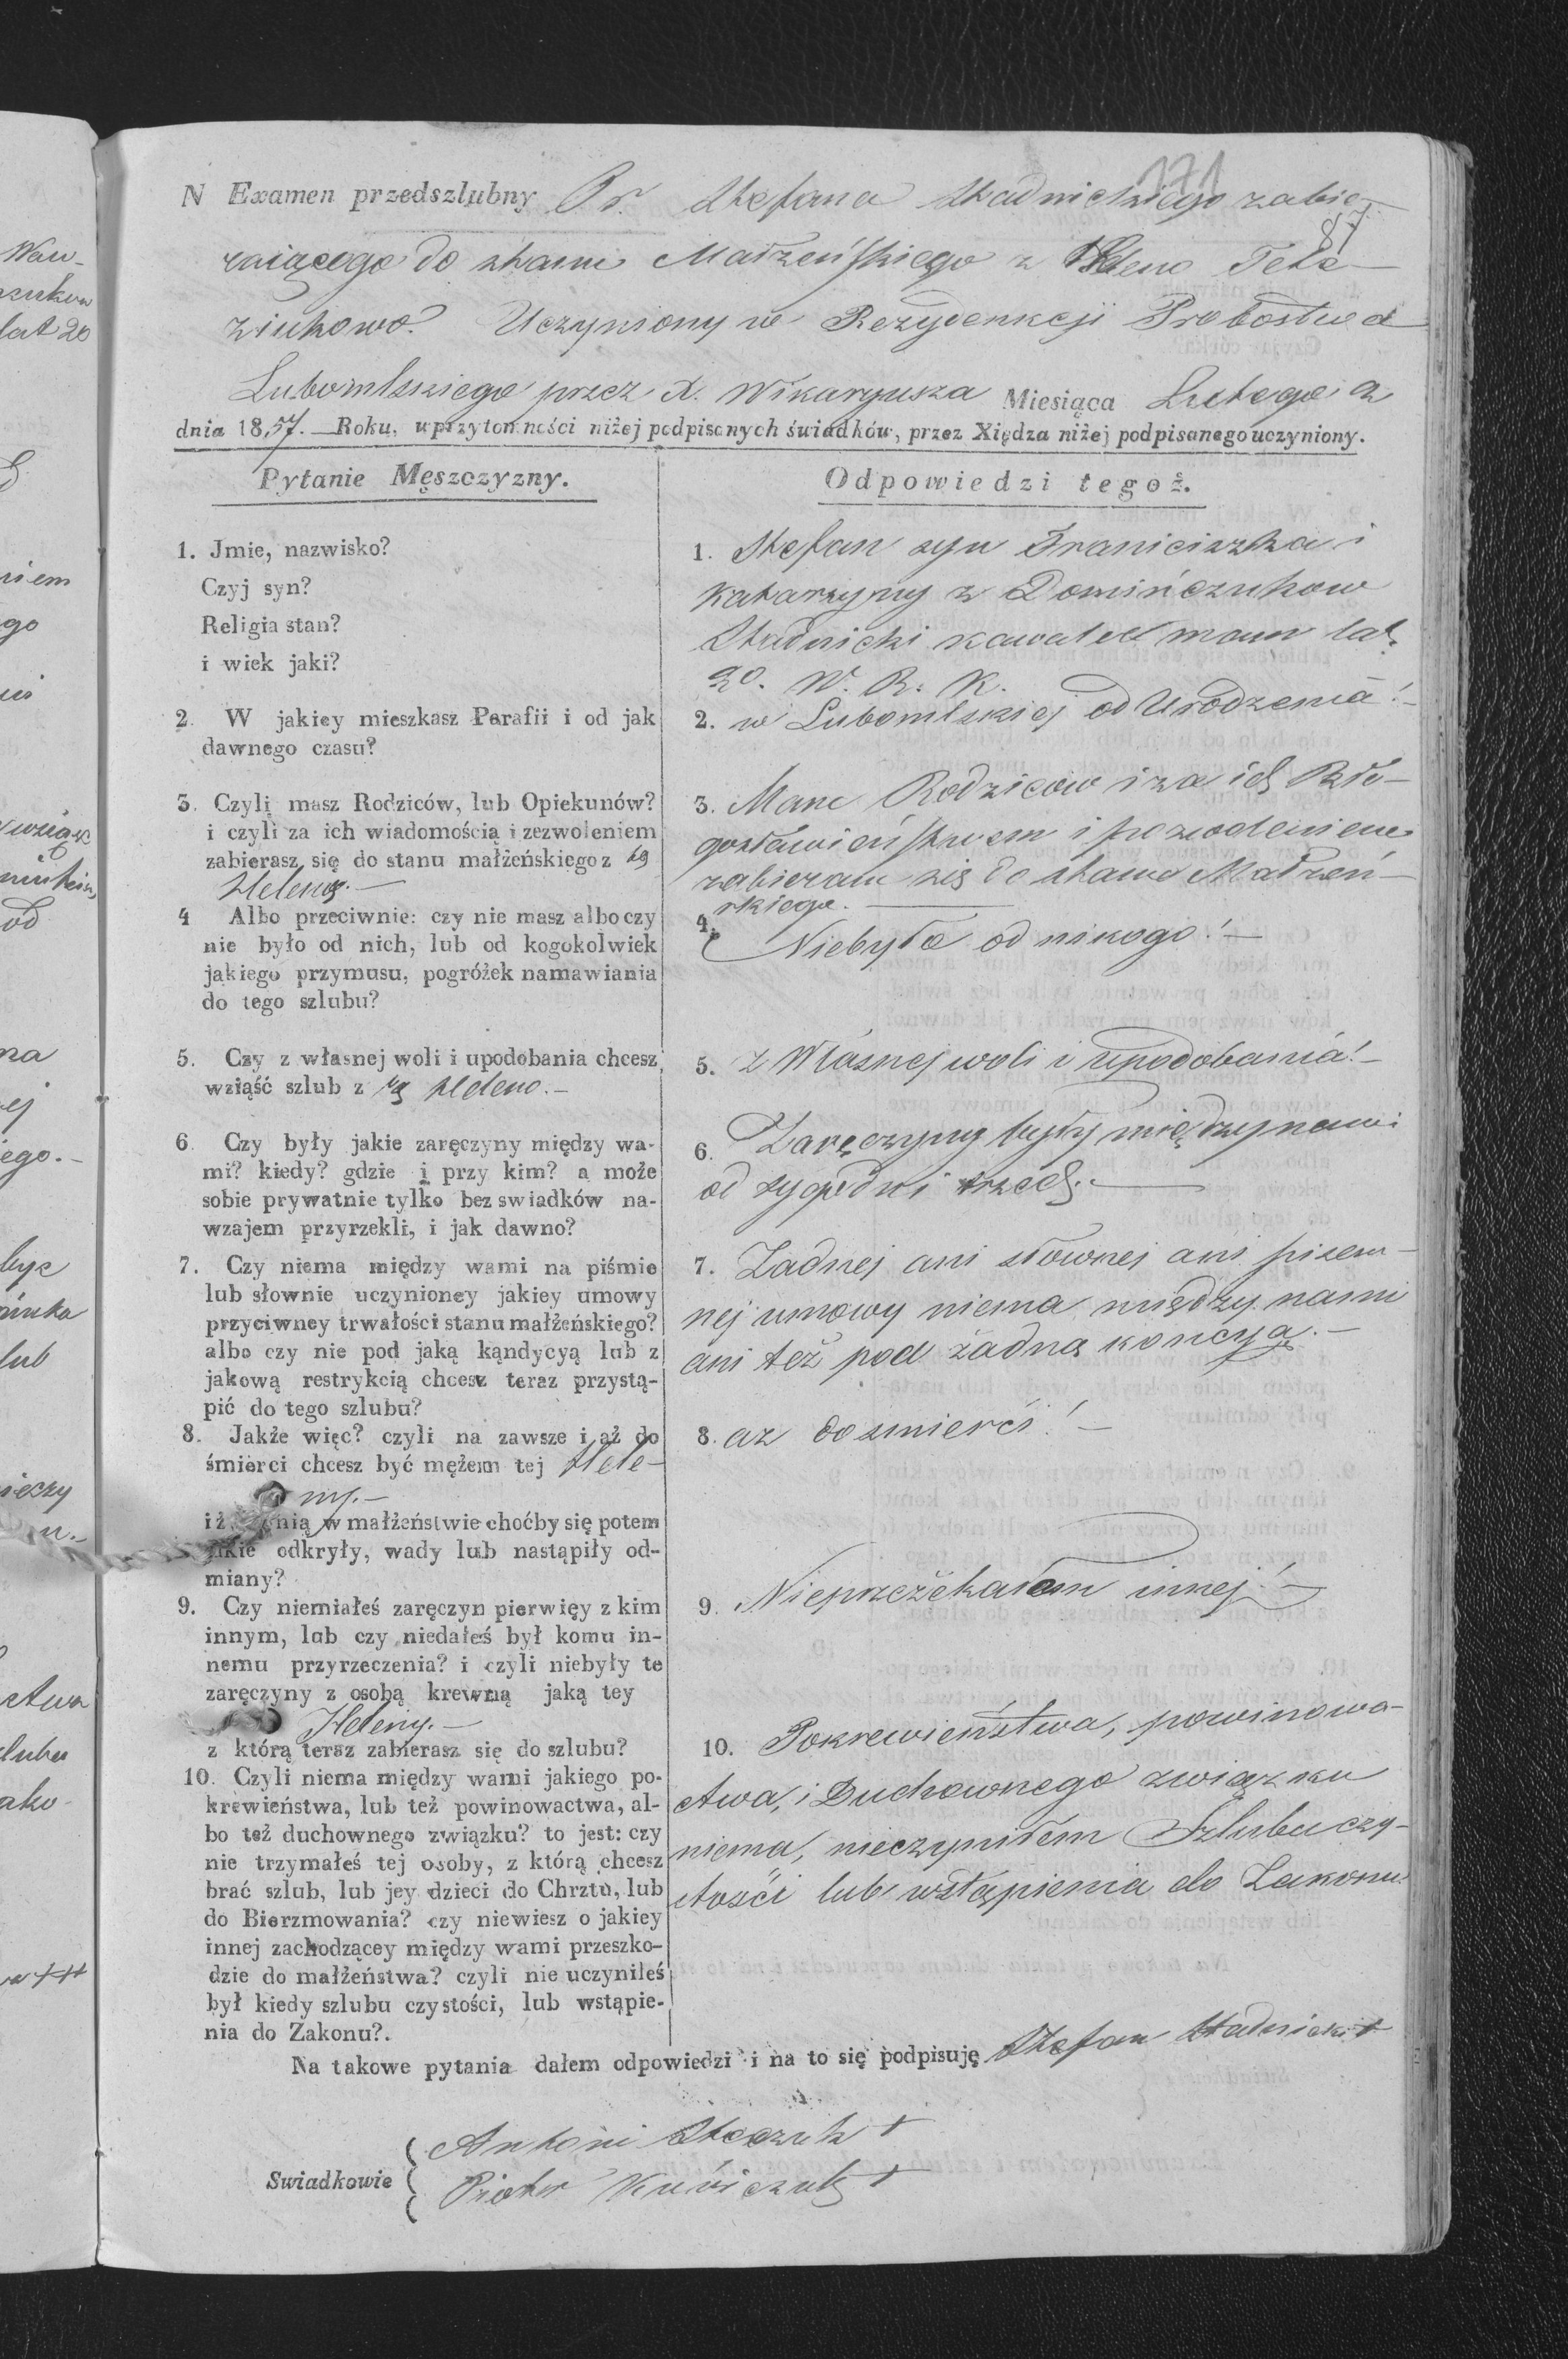 171
87
N Examen przedszlubny Pr. Stefana Stadnickiego zabie-
rającego do stanu Małżeńskiego z Heleno Tete-
ziukowo. Uczyniony w Rezydenkcji Probostwa
Lubomlskiego przez X. Wikaryusza Miesiąca Lutego 2
dnia 1857. Roku, w przytomności niżej podpisanych świadków, przez Xiędza niżej podpisanego uczyniony.
Pytanie Męszczyzny.
Odpowiedzi tegoż.
1. Jmie, nazwisko?
Czyj syn?
Religia stan?
i wiek jaki?
1. Stefan syn Franiciszka i
Katarzyny z Domińczukow
Stadnicki kawaler mam lat
20. W. R. K.
2. W jakiey mieszkasz Parafii i od jak
dawnego czasu?
2. w Lubomlskiej od Urodzenia!-
3. Czyli masz Rodziców, lub Opiekunów?
i czyli za ich wiadomością i zezwoleniem
zabierasz się do stanu małżeńskiego z tą
Heleną.-
3. Mam Rodziców i za ich Bło-
gosławieństwem i pozwoleniem
zabieram się do stanu Małżeń-
skiego.
4 Albo przeciwnie: czy nie masz albo czy
nie było od nich, lub od kogokolwiek
jakiego przymusu, pogróżek namawiania
do tego szlubu?
4. Niebyło od nikogo!-
5. Czy z własnej woli i upodobania chcesz
wziąść szlub z tą Heleno.-
5. z Własnej woli i upodobania!-
6. Czy były jakie zaręczyny między wa-
mi? kiedy? gdzie i przy kim? a może
sobie prywatnie tylko bez swiadków na-
wzajem przyrzekli, i jak dawno?
6. Zaręczyny były między nami
od tygodni trzech.-
7. Czy niema między wami na piśmie
lub słownie uczynioney jakiey umowy
przyciwney trwałości stanu małżeńskiego?
albo czy nie pod jaką kąndycyą lub z
jakową restrykcią chcesz teraz przystą-
pić do tego szlubu?
7. Żadnej ani słownej ani pisem-
nej umowy niema między nami
ani też pod żadną koncyą.-
8. Jakże więc? czyli na zawsze i aż do
śmierci chcesz być mężem tej Hele-
ny.-
iż z nią w małżeństwie choćby się potem
jakie odkryły, wady lub nastąpiły od-
miany?
8. az do smierci!-
9. Czy niemiałeś zaręczyn pierwięy z kim
innym, lub czy niedałeś był komu in-
nemu przyrzeczenia? i czyli niebyły te
zaręczyny z osobą krewną jaką tey
Heleny.-
z którą teraz zabierasz się do szlubu?
9. Nieprzežekałem innej!-
10. Czyli niema między wami jakiego po-
krewieństwa, lub też powinowactwa, al-
bo też duchownego związku? to jest: czy
nie trzymałeś tej osoby, z którą chcesz
brać szlub, lub jey dzieci do Chrztu, lub
do Bierzmowania? czy niewiesz o jakiey
innej zachodzącey między wami przeszko-
dzie do małżeństwa? czyli nie uczyniłeś
był kiedy szlubu czystości, lub wstąpie-
nia do Zakonu?.
10. Pokrewieństwa, powinowa-
ctwa, i Duchownego związku
niema, nieczyniłem Szlubu czy-
stości lub wstąpienia do Zakonu
Na takowe pytania dałem odpowiedzi i na to się podpisuję Stefan Stadnicki +
Swiadkowie
Antoni +
Piotr +